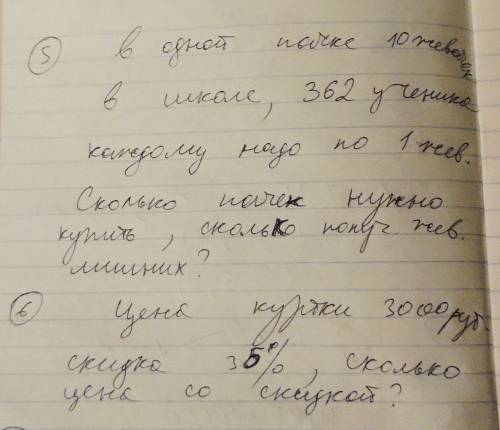 5 в одной пачке 10 жевачек
в школе, 362 ученика
каждому надо по 1 жев.
Сколько пачек нужно
купить, сколько получ жев.
лишних?
6 Цена куртки 3000 руб.
скидка 35%, сколько
цена со скидкой?